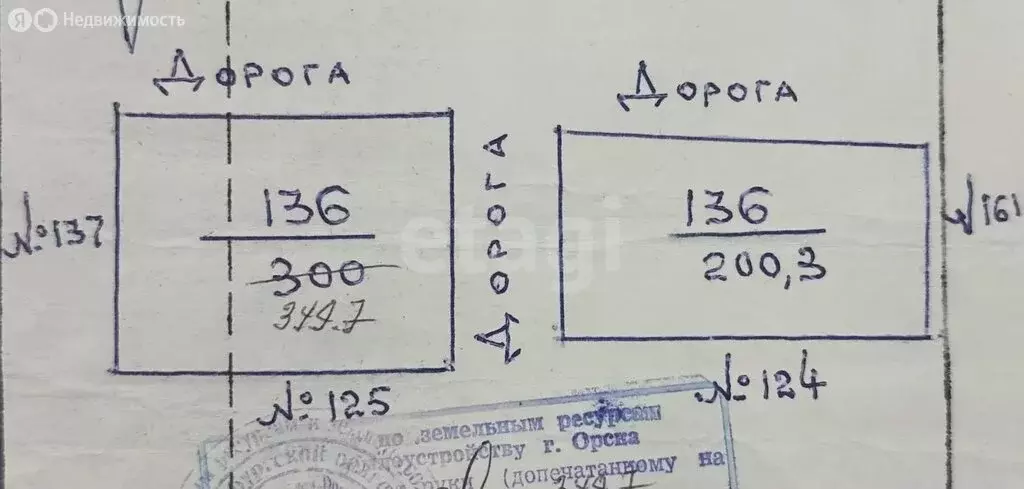 Я Недвижимость
Дорога
Дорога
136
300
349.7
№137
Дорога
136
200,3
№161
№125
№124
etagi
по земельным ресурсам
г. Орска
(допечатанному на
349.7